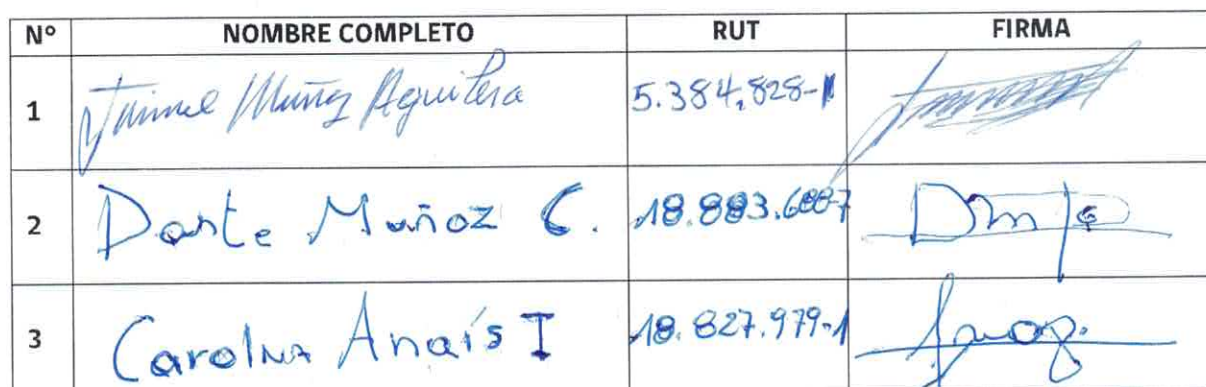 Nº NOMBRE COMPLETO RUT FIRMA
1 Jaime Muñoz Aguilera 5.384.828-1
2 Dante Muñoz C. 18.883.688-7
3 Carolina Anaís I 18.827.979-1